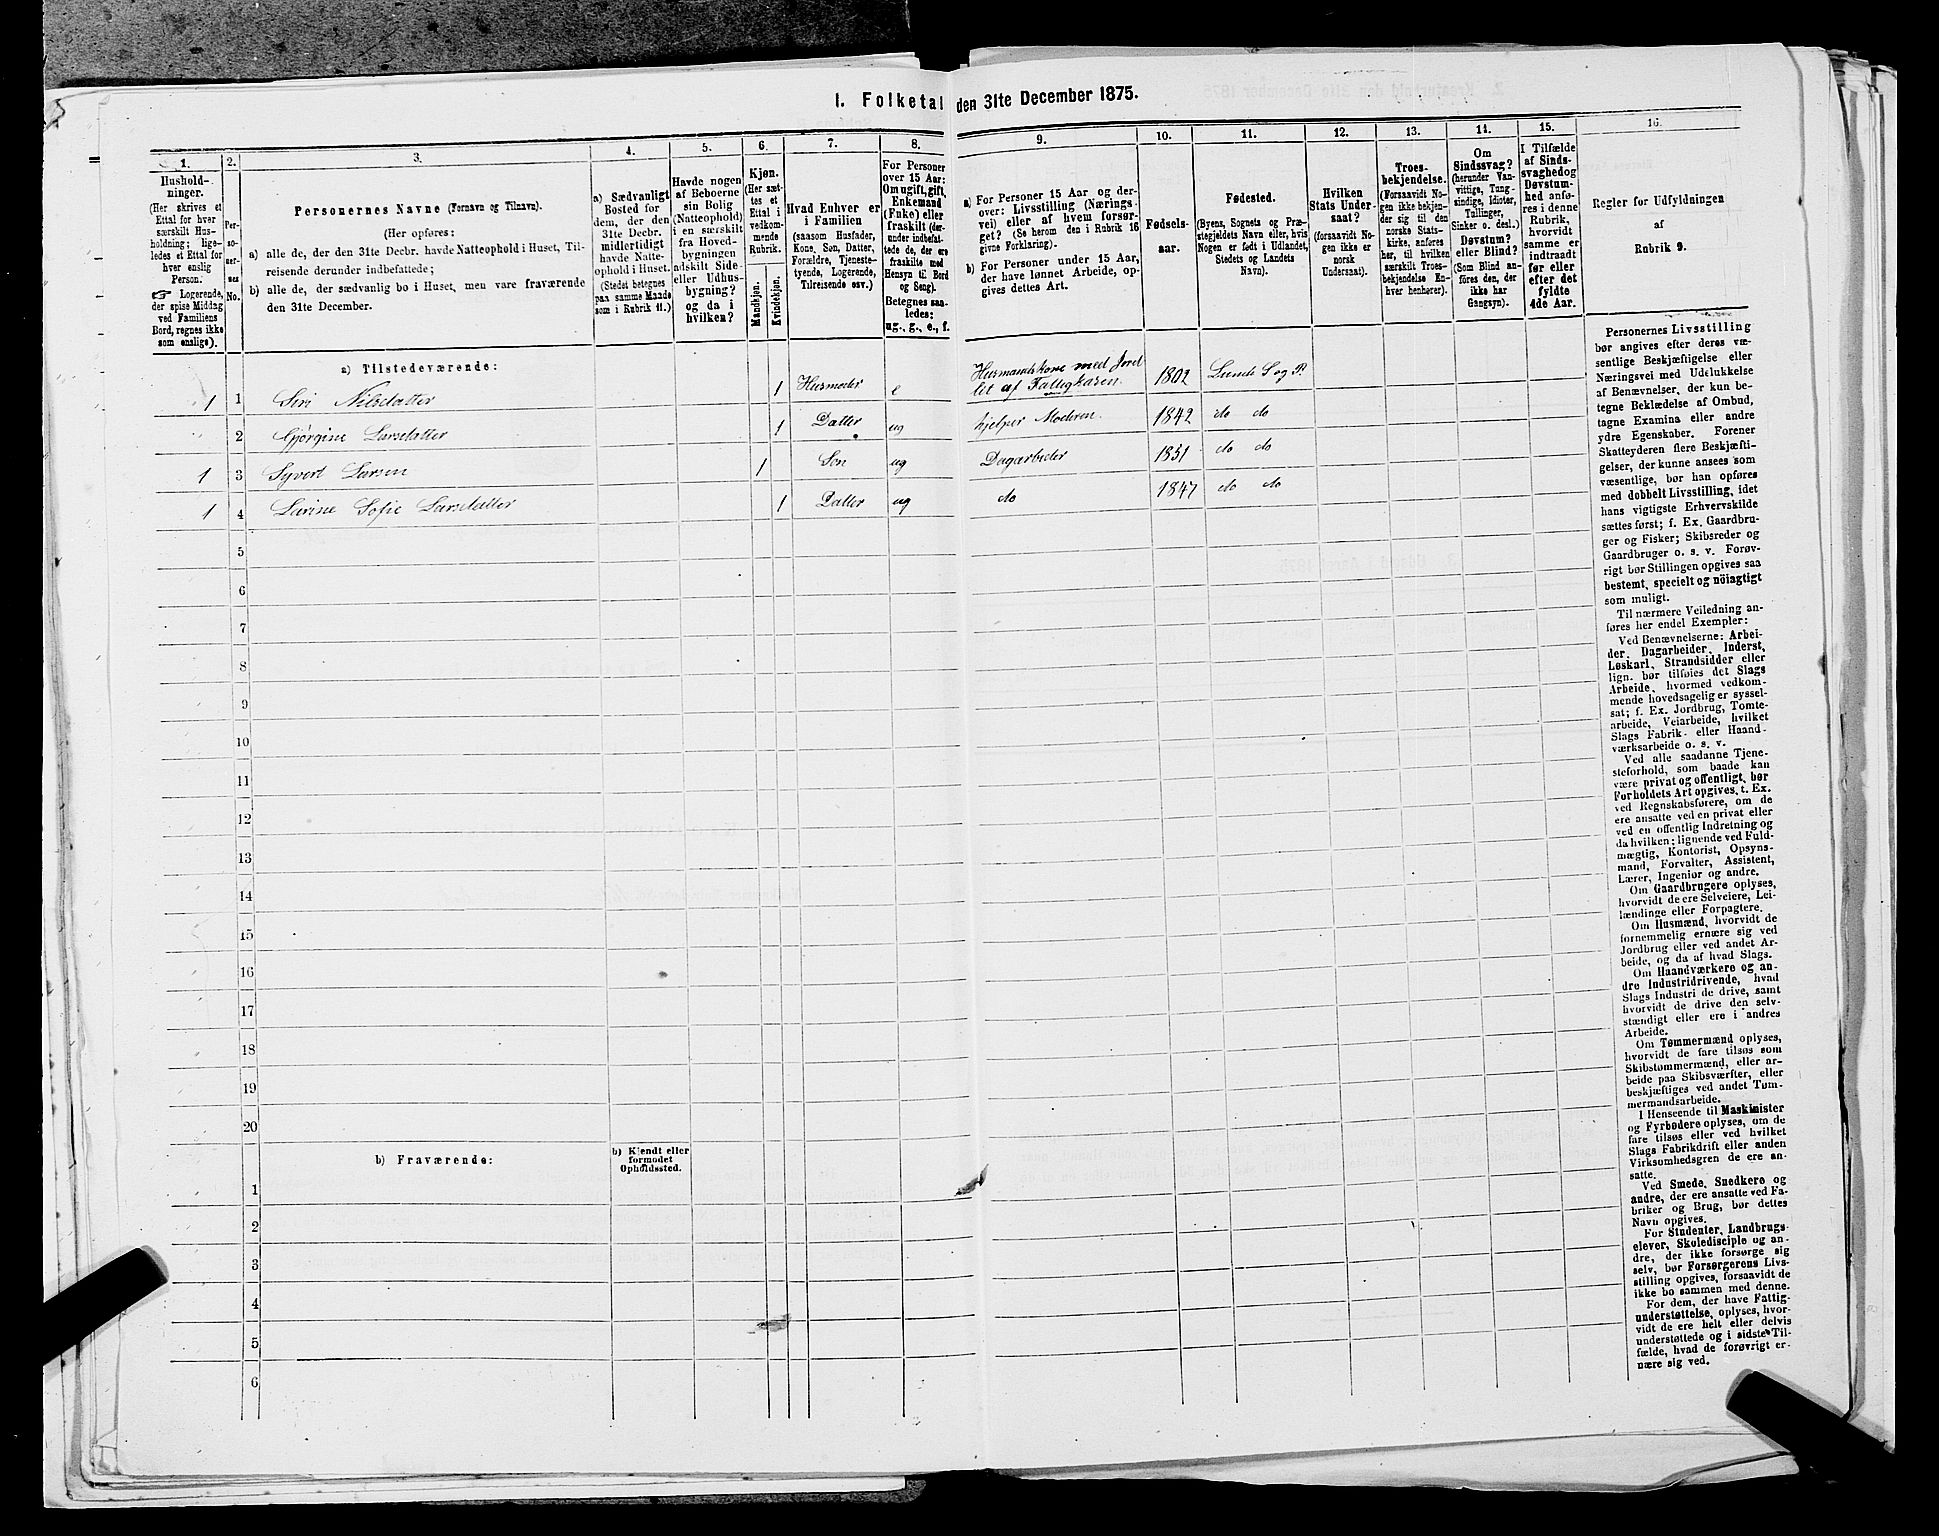 1. Folketal den 31te December 1875.
1.
2.
3.
4.
5.
6.
7.
8.
9.
10.
11.
12.
13.
14.
15.
16.
Hushold-
ninger.
(Her skrives et
Ettal for hver
særskilt Hus-
holdning; lige-
ledes et Ettal for
hver enslig
Person.
☞ Logerende,
der spise Middag
ved Familiens
Bord, regnes ikke
som enslige).
Per-
so-
ner-
nes
No.
Personernes Navne (Fornavn og Tilnavn).
(Her opføres:
a) alle de, der den 31te Decbr. havde Natteophold i Huset, Til-
reisende derunder indbefattede;
b) alle de, der sædvanlig bo i Huset, men vare fraværende
den 31te December.
a) Sædvanligt
Bosted for
dem, der den
31te Decbr.
midlertidigt
havde Natte-
ophold i Huset.
(Stedet betegnes
paa samme Maade
som i Rubrik 11.)
Havde nogen
af Beboerne
sin Bolig
(Natteophold)
i en særskilt
fra Hoved-
bygningen
adskilt Side-
eller Udhus-
bygning?
og da i
hvilken?
Kjøn.
(Her sæt-
tes et
Ettal i
vedkom-
mende
Rubrik.
Mandkjøn.
Kvindekjøn.
Hvad Enhver er
i Familien
(saasom Husfader,
Kone, Søn, Datter,
Forældre, Tjeneste-
tyende, Logerende,
Tilreisende osv.)
For Personer
over 15 Aar:
Om ugift, gift,
Enkemand
(Enke) eller
fraskilt (der-
under indbefat-
tede de, der ere
fraskilte med
Hensyn til Bord
og Seng).
Betegnes saa-
ledes:
ug., g., e., f.
a) For Personer 15 Aar og der-
over: Livsstilling (Nærings-
vei) eller af hvem forsør-
get? (Se herom den i Rubrik 16
givne Forklaring).
b) For Personer under 15 Aar,
der have lønnet Arbeide, op-
gives dettes Art.
Fødsels-
aar.
Fødested.
(Byens, Sognets og Præ-
stegjeldets Navn eller, hvis
Nogen er født i Udlandet,
Stedets og Landets
Navn).
Hvilken
Stats Under-
saat?
(forsaavidt No-
gen ikke er
norsk
Undersaat).
Troes-
bekjendelse.
(Forsaavidt No-
gen ikke bekjen-
der sig til den
norske Stats-
kirke, anføres
her, til hvilken
særskilt Troes-
bekjendelse En-
hver henhører).
Om
Sindssvag?
(herunder Van-
vittige, Tung-
sindige, Idioter,
Tullinger,
Sinker o. desl.)
Døvstum?
eller Blind?
(Som Blind an-
føres den, der
ikke har
Gangsyn).
I Tilfælde
af Sinds-
svaghed og
Døvstum-
hed anfø-
res i denne
Rubrik,
hvorvidt
samme er
indtraadt
før eller
efter det
fyldte
4de Aar.
Regler for Udfyldningen
af
Rubrik 9.
a) Tilstedeværende:
1 1 Siri Nilsdatter 1 Husmoder e Husmandskone med Jord 1802 Lunde S og P.
2 Gjørgine Larsdatter 1 Datter ug hjelper Moderen. 1842 do do
1 3 Syvert Larsen 1 Søn ug Dagarbeider 1851 do do
1 4 Larine Sofie Larsdatter 1 Datter ug do 1847 do do
5
6
7
8
9
10
11
12
13
14
15
16
17
18
19
20
b) Fraværende:
b) Kjendt eller
formodet
Opholdssted.
1
2
3
4
5
6
Personernes Livsstilling
bør angives efter deres væ-
sentlige Beskjæftigelse eller
Næringsvei med Udelukkelse
af Benævnelser, der kun be-
tegne Beklædelse af Ombud,
tagne Examina eller andre
ydre Egenskaber. Forener
Skatteyderen flere Beskjæfti-
gelser, der kunne ansees som
væsentlige, bør han opføres
med dobbelt Livsstilling, idet
hans vigtigste Erhvervskilde
sættes først; f. Ex. Gaardbru-
ger og Fisker; Skibsreder og
Gaardbruger o. s. v. Forøv-
rigt bør Stillingen opgives saa
bestemt, specielt og nöiagtigt
som muligt.
Til nærmere Veiledning an-
føres her endel Exempler:
Ved Benævnelserne: Arbei-
der, Dagarbeider, Inderst,
Løskarl, Strandsidder eller
lign. bør tilføies det Slags
Arbeide, hvormed vedkom-
mende hovedsagelig er syssel-
sat; f. Ex. Jordbrug, Tomte-
arbeide, Veiarbeide, hvilket
Slags Fabrik- eller Haand-
værksarbeide o. s. v.
Ved alle saadanne Tjene-
steforhold, som baade kan
være privat og offentligt, bør
Forholdets Art opgives, t. Ex.
ved Regnskabsførere, om de
ere ansatte ved en privat eller
ved en offentlig Indretning og
da hvilken; lignende ved Fuld-
mægtig, Kontorist, Opsyns-
mand, Forvalter, Assistent,
Lærer, Ingeniør og andre.
Om Gaardbrugere oplyses,
hvorvidt de ere Selveiere, Lei-
lændinge eller Forpagtere.
Om Husmænd, hvorvidt de
fornemmelig ernære sig ved
Jordbrug eller ved andet Ar-
beide, og da af hvad Slags.
Om Haandværkere og an-
dre Industridrivende, hvad
Slags Industri de drive, samt
hvorvidt de drive den selv-
stændigt eller ere i andres
Arbeide.
Om Tømmermænd oplyses,
hvorvidt de fare tilsøs som
Skibstømmermænd, eller ar-
beide paa Skibsværfter, eller
beskjæftiges ved andet Tøm-
mermandsarbeide.
I Henseende til Maskinister
og Fyrbødere oplyses, om de
fare tilsøs eller ved hvilket
Slags Fabrikdrift eller anden
Virksomhedsgren de ere an-
satte.
Ved Smede, Snedkere og
andre, der ere ansatte ved Fa-
briker og Brug, bør dettes
Navn opgives.
For Studenter, Landbrugs-
elever, Skoledisciple og an-
dre, der ikke forsørge sig
selv, bør Forsørgerens Livs-
stilling opgives, forsaavidt de
ikke bo sammen med denne.
For dem, der have Fattig-
understøttelse, oplyses, hvor-
vidt de ere helt eller delvis
understøttede og i sidste Til-
fælde, hvad de forøvrigt er-
nære sig ved.